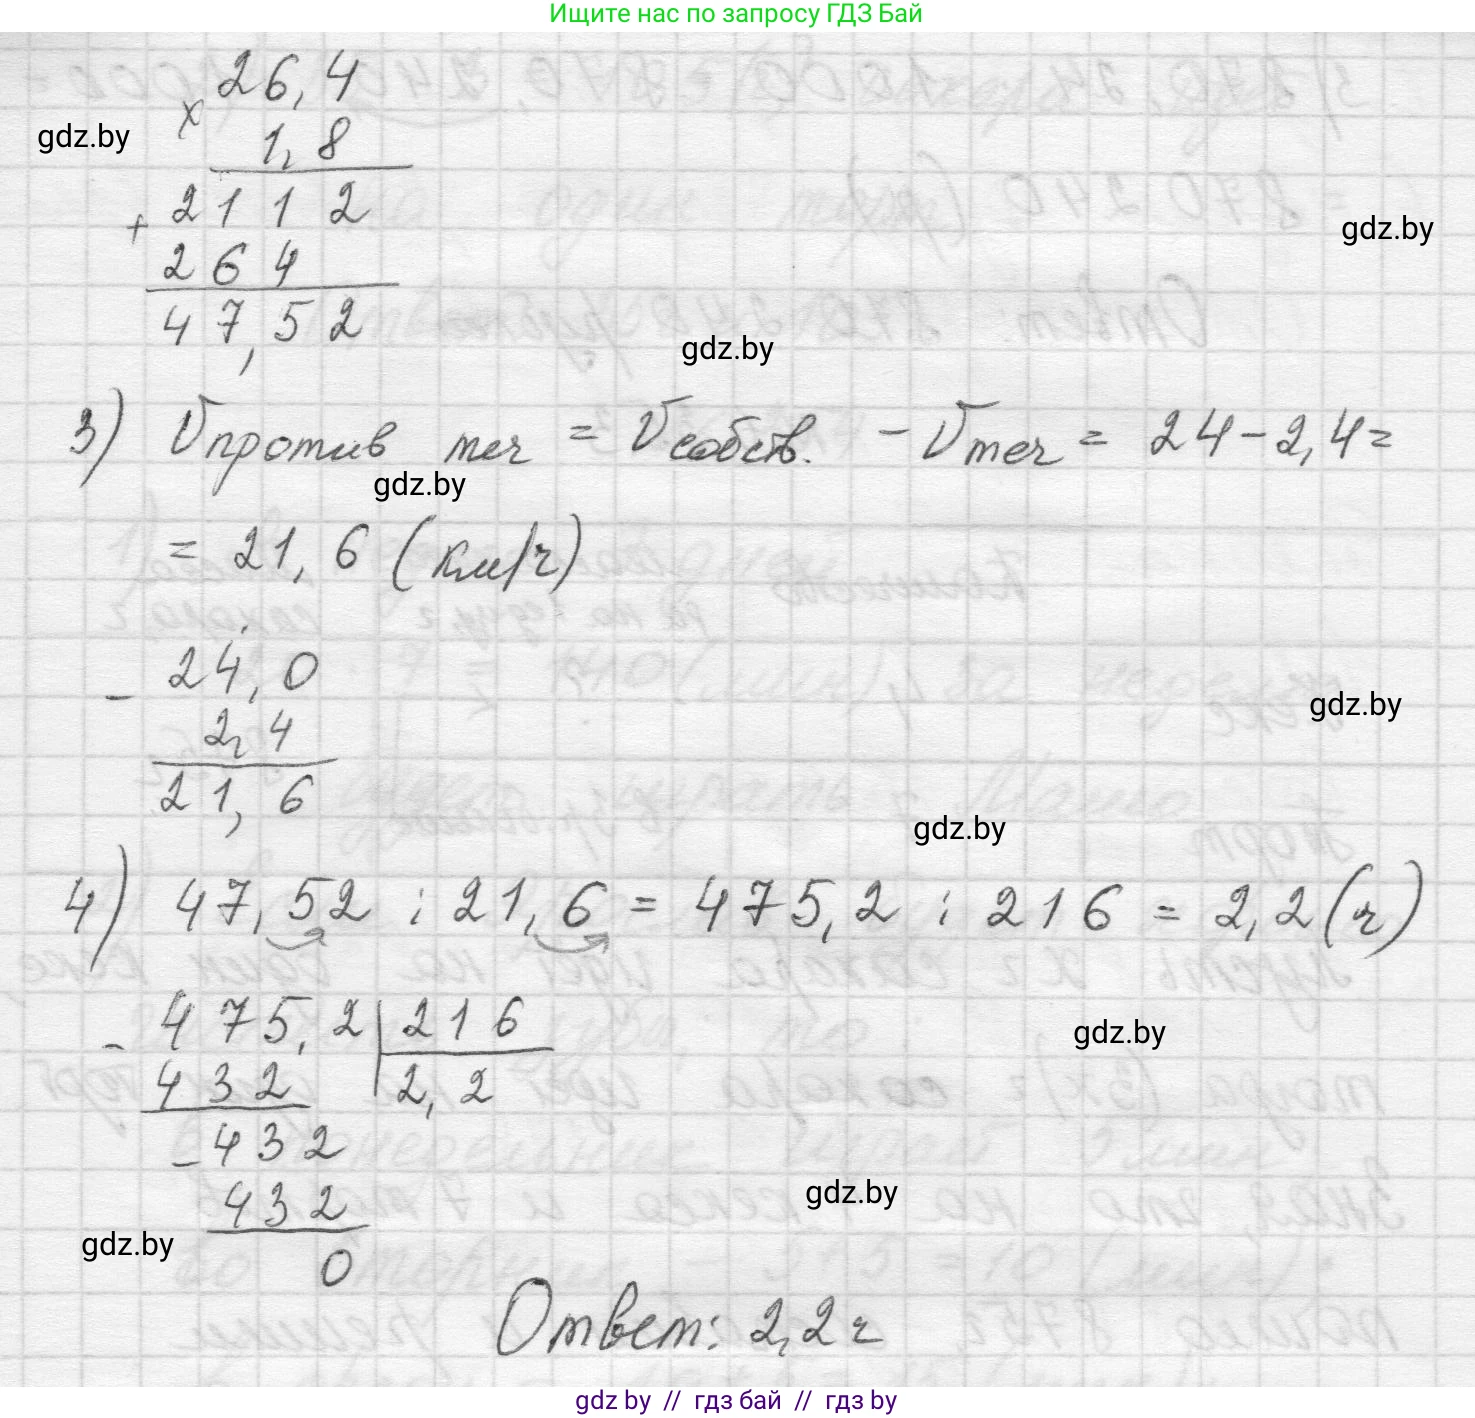 Ищите нас по запросу ГДЗ Бай
26,4
×
gdz.by
1,8
2112
+
gdz.by
264
47,52
gdz.by
3) Vпротив теч = Vсобств. - Vтеч = 24-2,4=
gdz.by
= 21,6 (км/ч)
24,0
-
gdz.by
2,4
21,6
gdz.by
4) 47,52 : 21,6 = 475,2 : 216 = 2,2 (ч)
- 475,2 | 216
gdz.by
432 2,2
- 432
432
gdz.by
gdz.by
0
Ответ: 2,2 ч
gdz by // гдз бай // гдз by